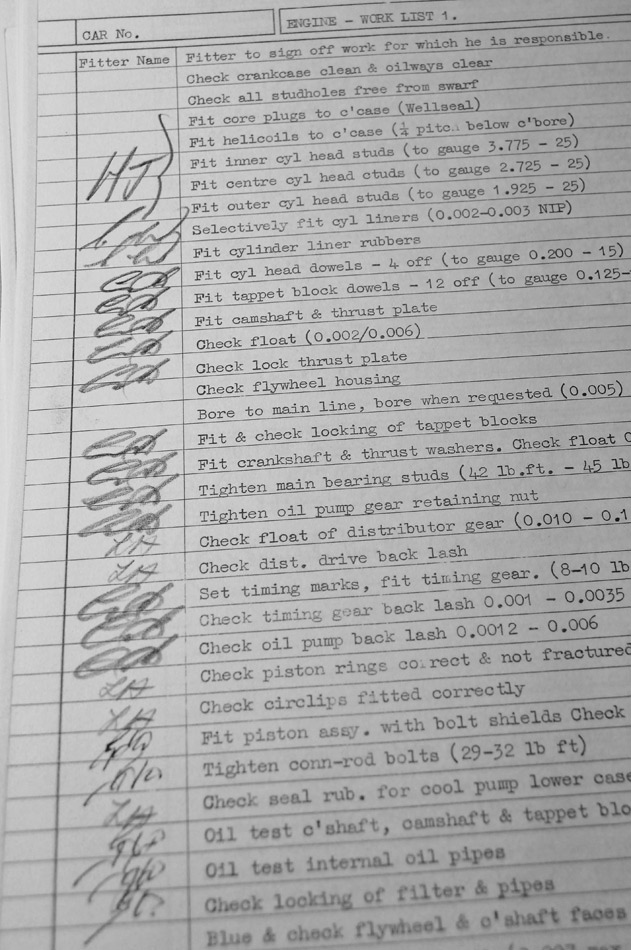 CAR No.
ENGINE - WORK LIST 1.
Fitter Name
Fitter to sign off work for which he is responsible.
Check crankcase clean & oilways clear
Check all studholes free from swarf
Fit core plugs to c'case (Wellseal)
Fit helicoils to c'case (¼ pitc. below c'bore)
HJ
Fit inner cyl head studs (to gauge 3.775 - 25)
Fit centre cyl head studs (to gauge 2.725 - 25)
Fit outer cyl head studs (to gauge 1.925 - 25)
Selectively fit cyl liners (0.002-0.003 NIP)
Fit cylinder liner rubbers
Fit cyl head dowels - 4 off (to gauge 0.200 - 15)
Fit tappet block dowels - 12 off (to gauge 0.125-
Fit camshaft & thrust plate
Check float (0.002/0.006)
Check lock thrust plate
Check flywheel housing
Bore to main line, bore when requested (0.005)
Fit & check locking of tappet blocks
Fit crankshaft & thrust washers. Check float
Tighten main bearing studs (42 lb.ft. - 45 lb
Tighten oil pump gear retaining nut
Check float of distributor gear (0.010 - 0.1
Check dist. drive back lash
Set timing marks, fit timing gear. (8-10 lb
Check timing gear back lash 0.001 - 0.0035
Check oil pump back lash 0.0012 - 0.006
Check piston rings correct & not fractured
Check circlips fitted correctly
Fit piston assy. with bolt shields Check
Tighten conn-rod bolts (29-32 lb ft)
Check seal rub. for cool pump lower case
Oil test c'shaft, camshaft & tappet blo
Oil test internal oil pipes
Check locking of filter & pipes
Blue & check flywheel & c'shaft faces